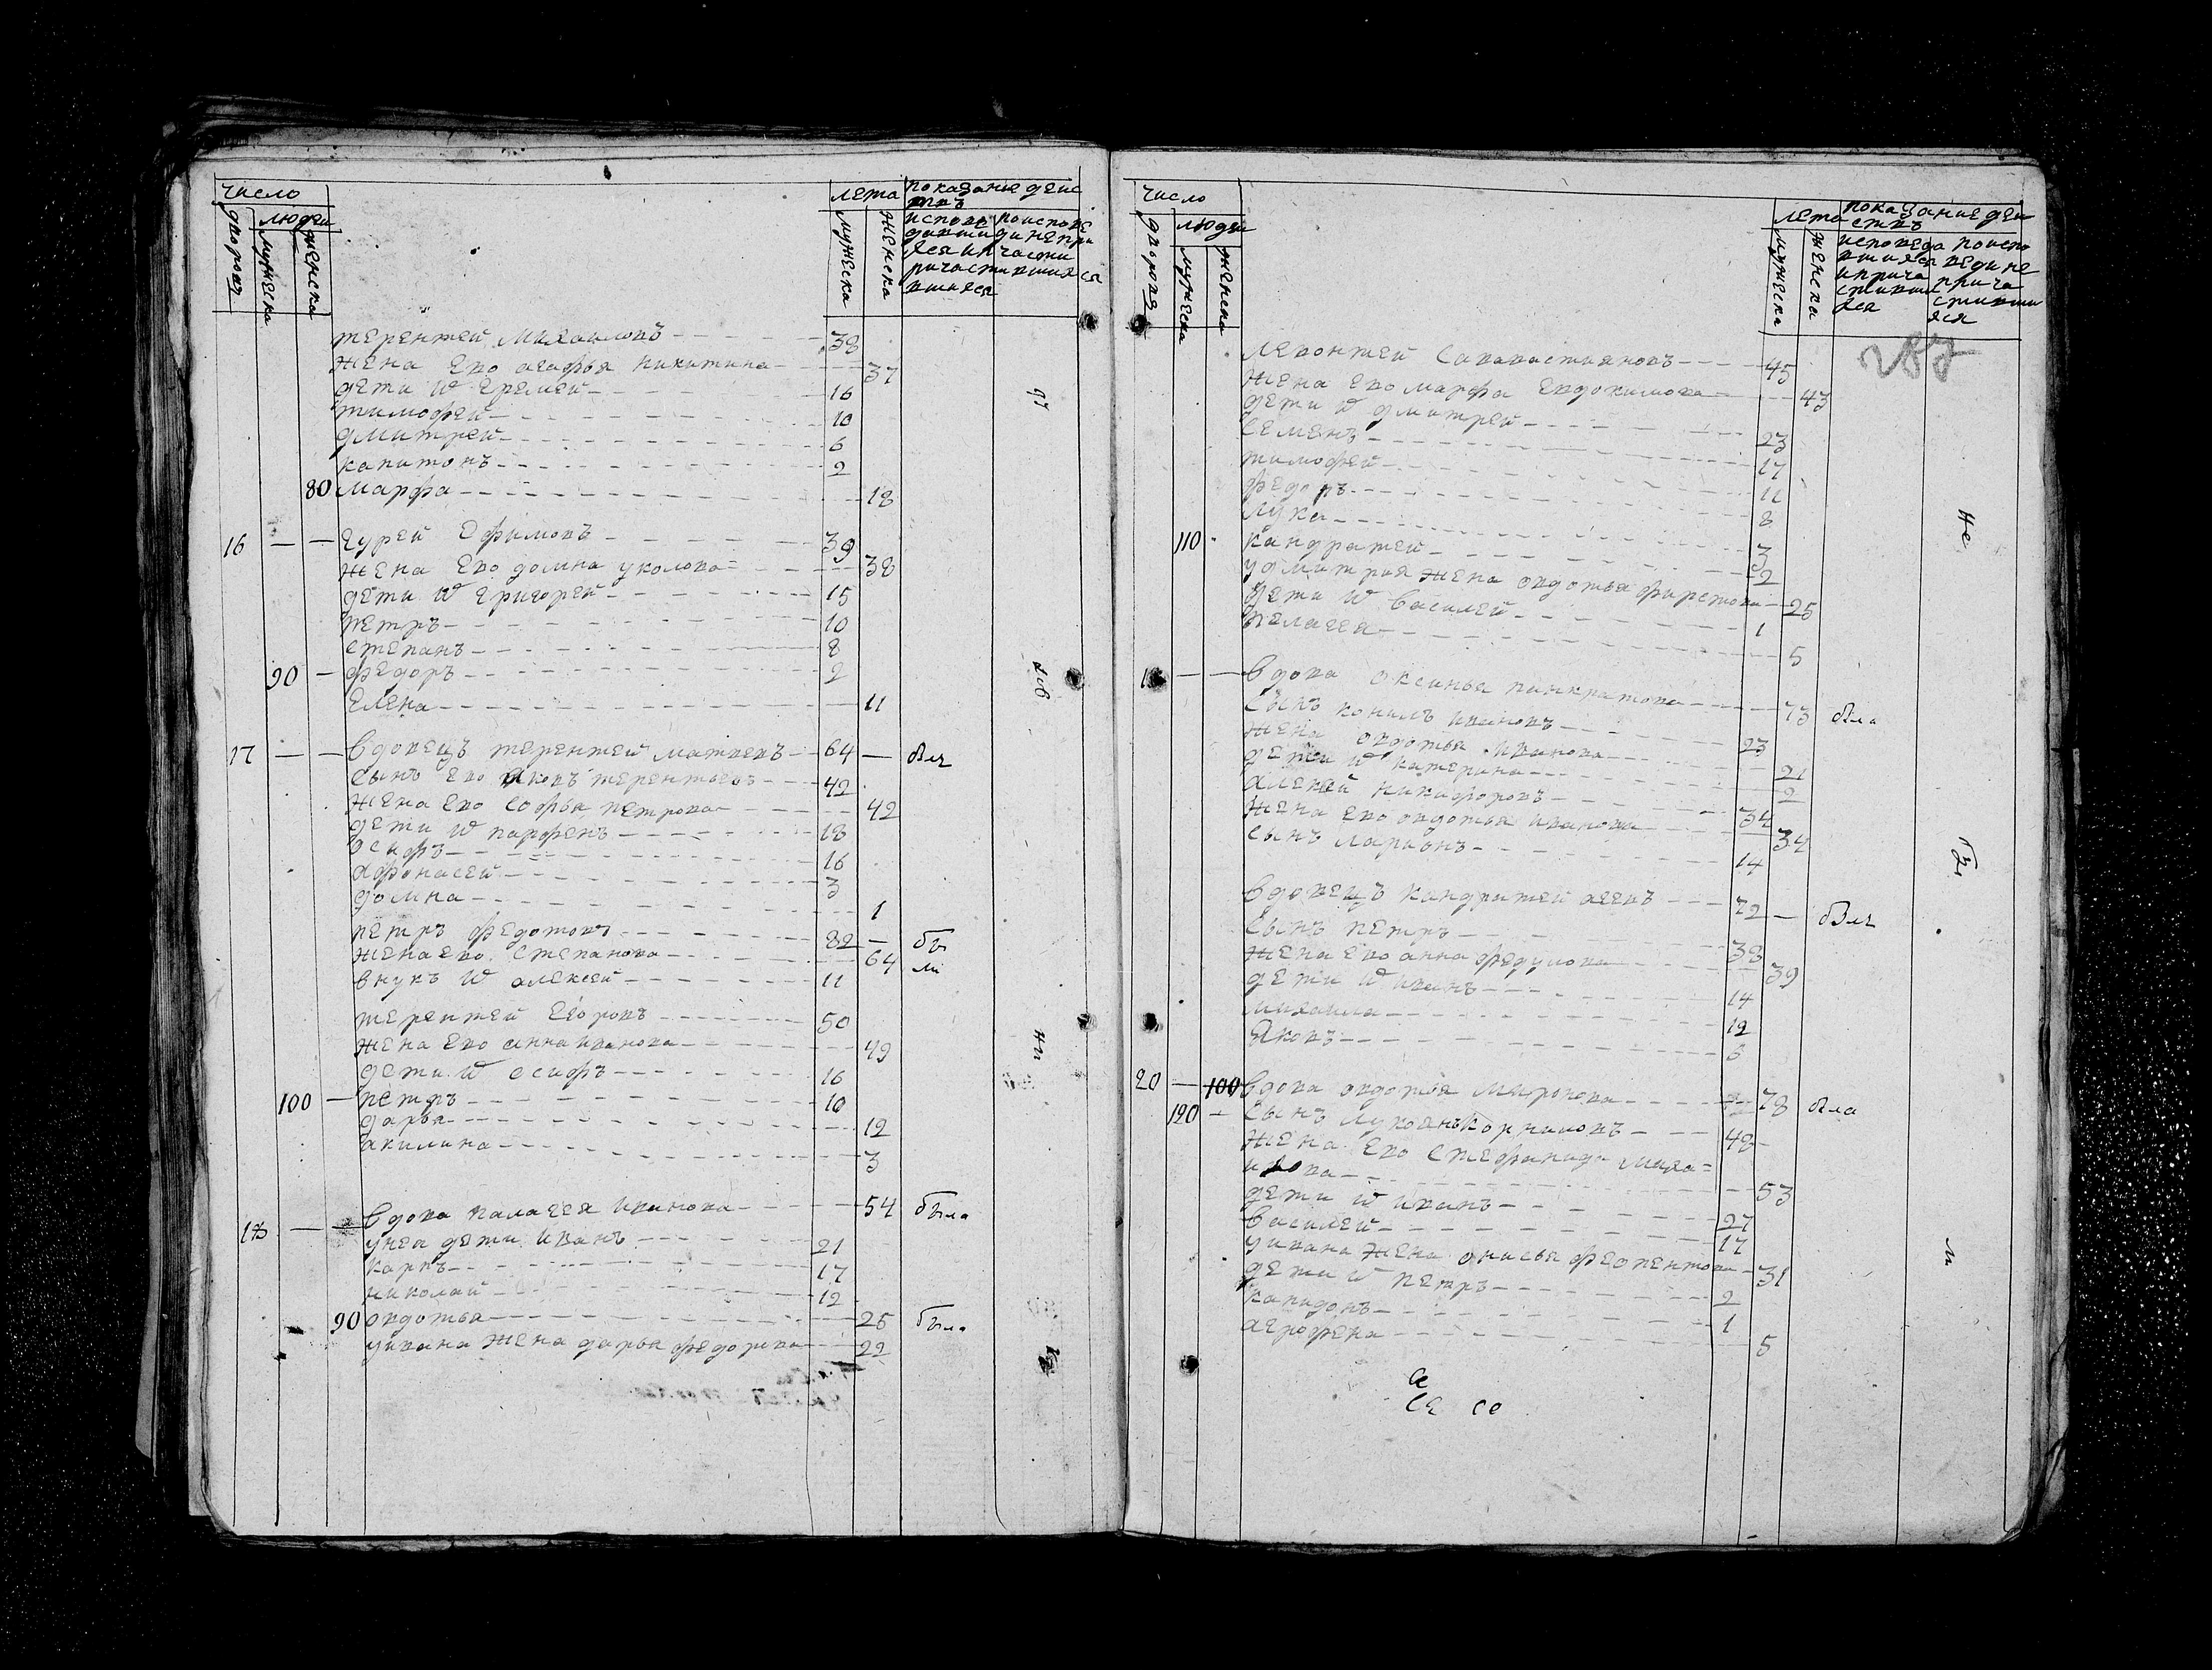 число
людеи
дворовъ
мужеска
женска
лета
мужеска
женска
показание деис
твъ
исповедавшияся и причастившияся
по исповеди не причастившияся
терентей михаиловъ 38
жена ево агафья никитина 37
дети Ѡ еремей 16
тимофей 10
дмитрей 6
капитонъ 2
80 марфа 18
16 — — гурей Ефимовъ 39
жена ево домна уколова 38
дети Ѡ григорей 15
петръ 10
степанъ 8
90 — федоръ 2
елена 11
17 — — вдовецъ терентей матвевъ 64 — былъ
сынъ ево яковъ терентьевъ 42
жена ево софья петрова 42
дети Ѡ парфенъ 18
осифъ 16
афонасей 3
домна 1
петръ федотовъ 82 — бы
жена ево степанова 64 ли
внукъ Ѡ алексей 11
терентей егоровъ 50
жена ево анна иванова 49
дети Ѡ осифъ 16
100 — петръ 10
дарья 12
акилина 3
18 — вдова палагея иванова 54 была
у нея дети иванъ 21
карпъ 17
николай 12
90 овдотья 25 была
у ивана жена дарья федорова 22
число
людеи
дворовъ
мужеска
женска
лета
мужеска
женска
показание деи
ствъ
исповедавшияся и причастившияся
по исповеди не причастившияся
287
левонтей савастияновъ 45
жена ево марфа евдокимова 43
дети Ѡ дмитрей 23
семенъ 17
тимофей 11
федоръ 8
лука 3
110 кандратей 2
у дмитрия жена овдотья фирсова 25
дети Ѡ василей 1
пелагея 5
— — вдова оксинья панкратова 73 была
сынъ конилъ ивановъ 23
жена овдотья иванова 21
дети Ѡ катерина 2
алексей никифоровъ 34
жена ево овдотья иванова 34
сынъ ларионъ 14
вдовецъ кандратей агевъ 72 — былъ
сынъ петръ 38
жена ево анна федулова 39
дети Ѡ иванъ 14
михаила 12
яковъ 6
20 — 100 вдова овдотья миронова 78 была
120 — сынъ лукоянъ корниловъ 48
жена ево стефанида миха=
илова 53
дети Ѡ иванъ 27
василей 17
у ивана жена онисья феопентова 31
дети Ѡ петръ 2
капидонъ 1
агрофена 5
не
бы
ли
се со